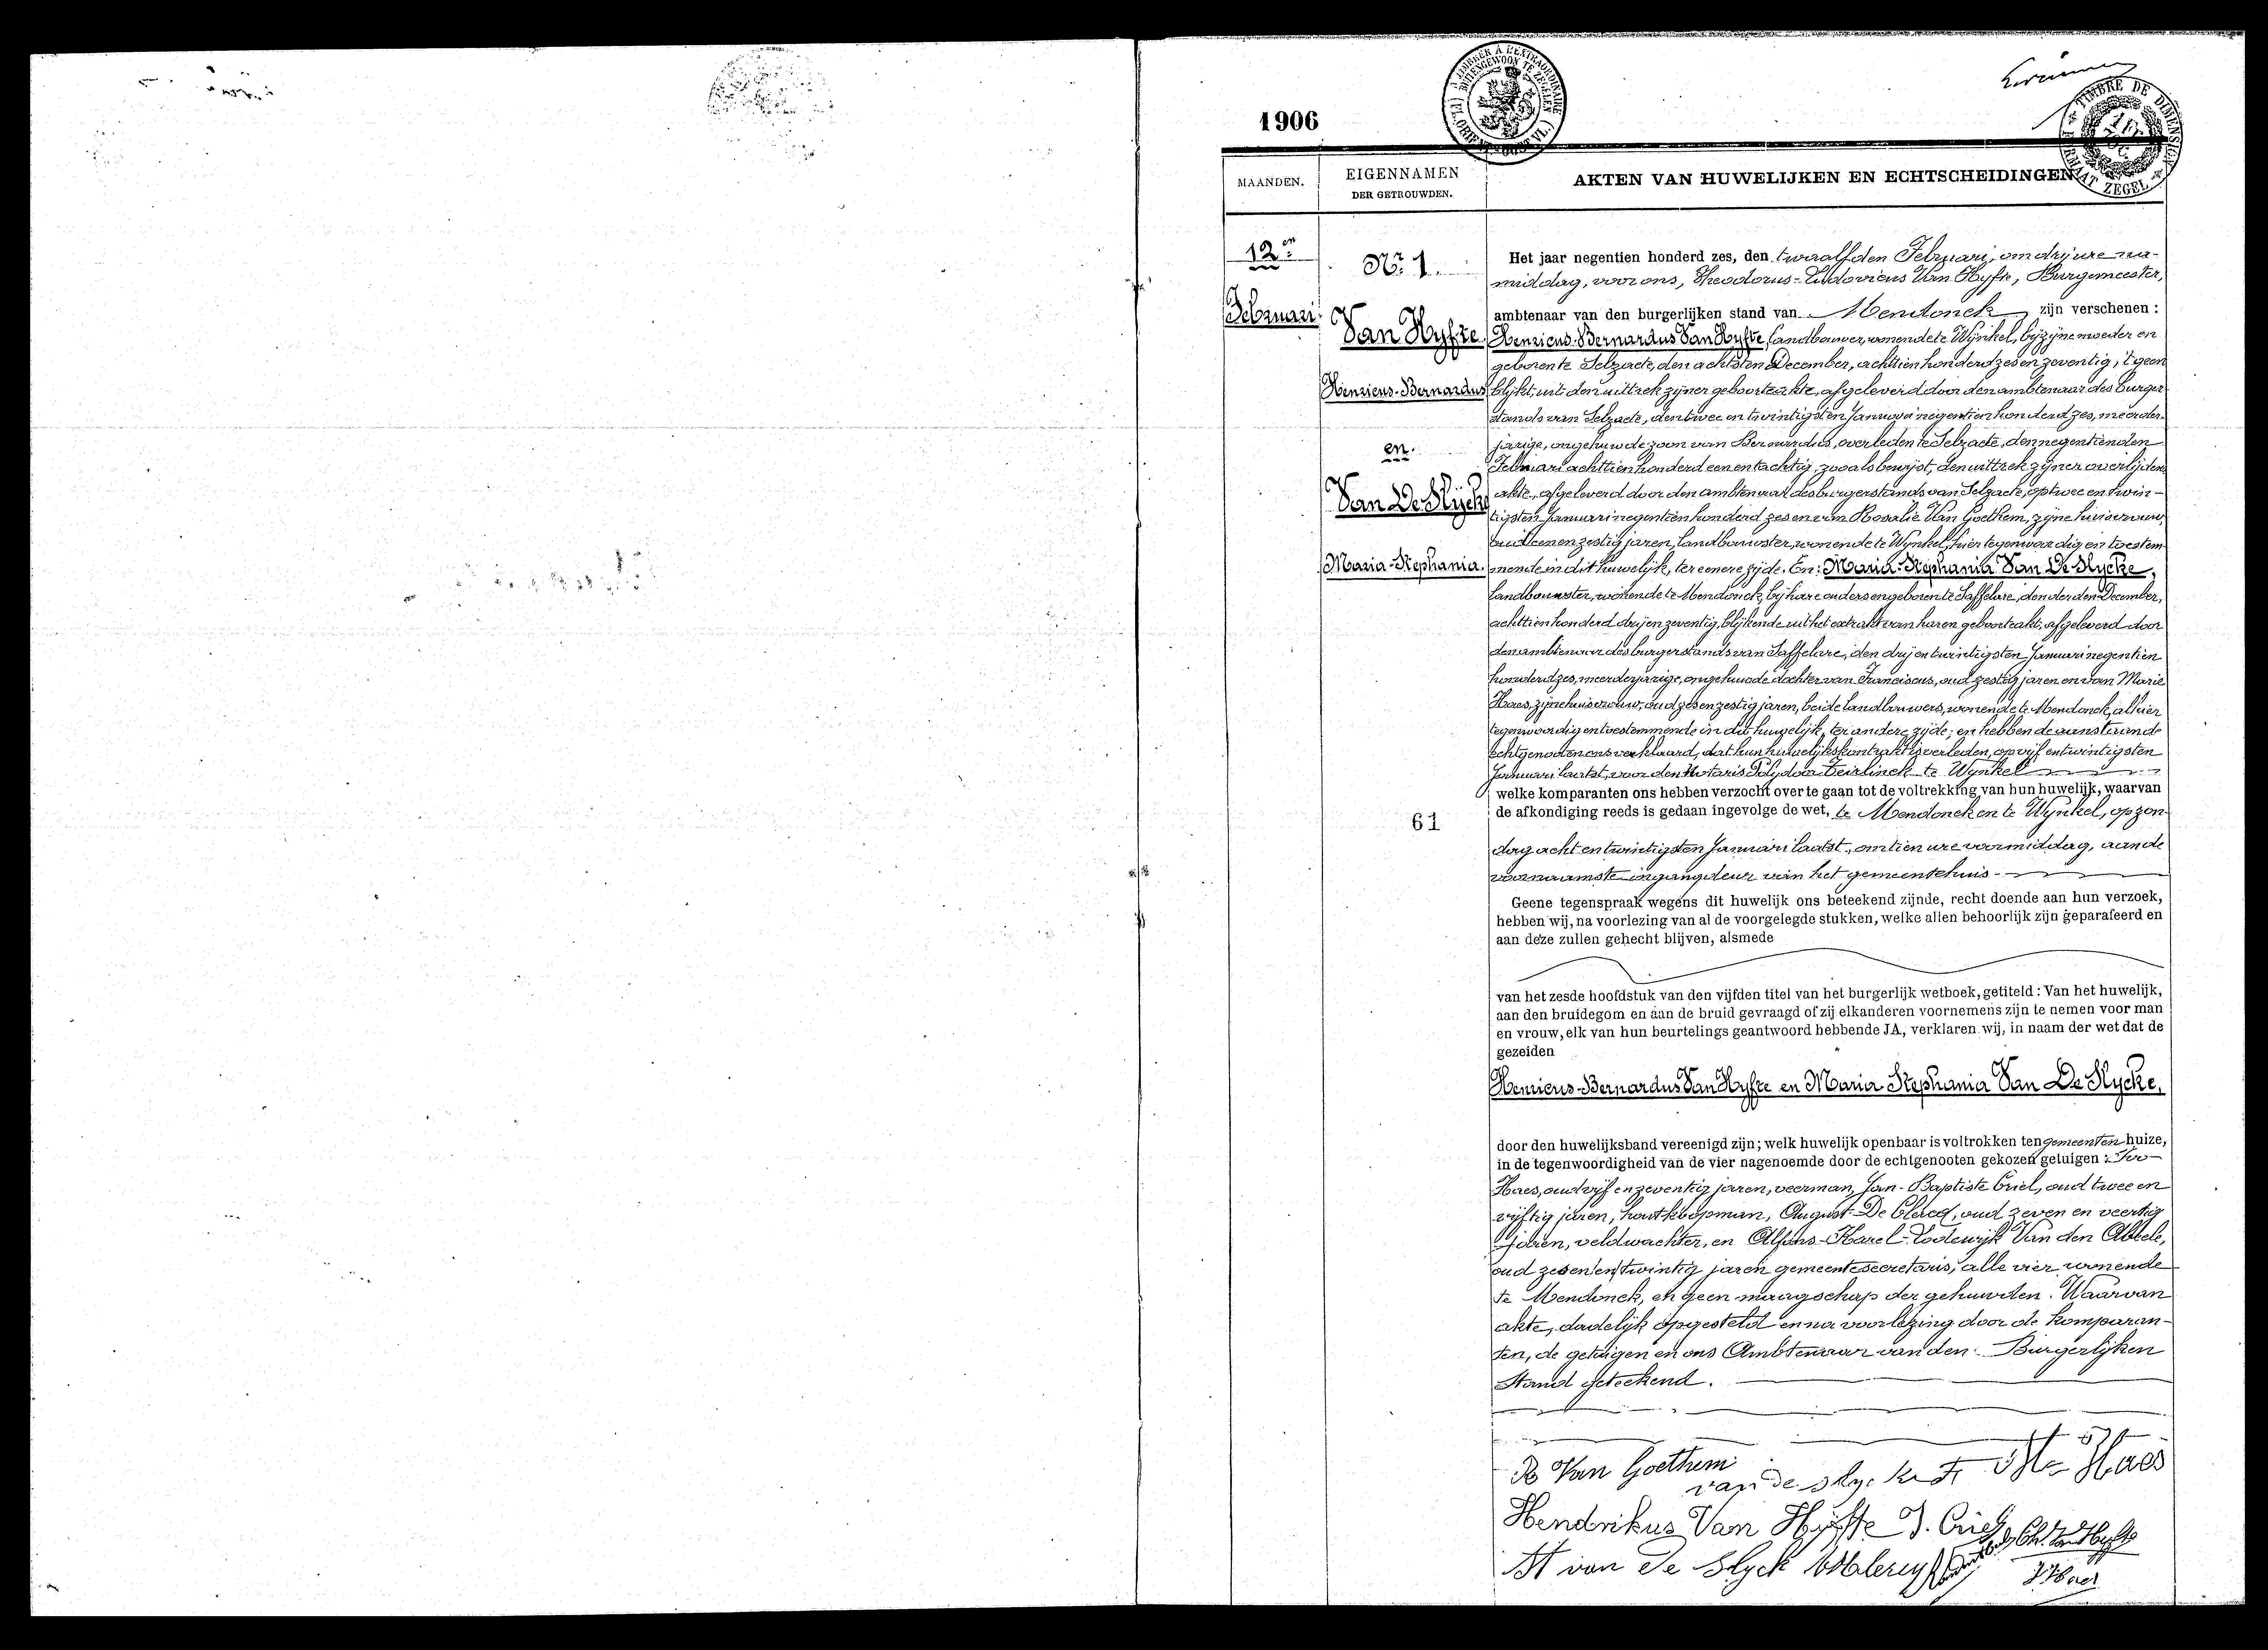 1906
MAANDEN.
EIGENNAMEN
DER GETROUWDEN.
AKTEN VAN HUWELIJKEN EN ECHTSCHEIDINGEN
12en
Februari
No 1.
Van Hyfte
Henricus-Bernardus
en
Van De Slycke
Maria-Stephania.
61
Het jaar negentien honderd zes, den twaalfden Februari, om drij ure na-
middag, voor ons, Theodorus-Ludovicus Van Hyfte, Burgemeester,
ambtenaar van den burgerlijken stand van Mendonck zijn verschenen :
Henricus-Bernardus Van Hyfte, landbouwer, wonende te Wynkel, bij zijne moeder en
geboren te Selzaete, den achtsten December, achttien honderd zes en zeventig, 't geen
blijkt uit den uittrek zijner geboorteakte, afgeleverd door den ambtenaar des burger-
stands van Selzaete, den twee en twintigsten Januari negentien honderd zes, meerder-
jarige, ongehuwde zoon van Bernardus, overleden te Selzaete, den negentienden
Februari achttien honderd een en tachtig, zooals bewijst, den uittrek zijner overlijdens
akte, afgeleverd door den ambtenaar des burgerstands van Selzaete, op twee en twin-
tigsten Januari negentien honderd zes en van Rosalie Van Goethem, zijne huisvrouw,
oud een en zestig jaren, landbouwster, wonende te Wynkel, hier tegenwoordig en toestem-
mende in dit huwelijk, ter eenere zijde. En: Maria-Stephania Van De Slycke,
landbouwster, wonende te Mendonck, bij hare ouders en geboren te Saffelare, den derden December,
achttien honderd drij en zeventig, blijkende uit het extrakt van haren geboorteakt, afgeleverd door
den ambtenaar des burgerstands van Saffelare, den drij en twintigsten Januari negentien
honderd zes, meerderjarige, ongehuwde dochter van Franciscus, oud zestig jaren en van Marie
Haes, zijne huisvrouw, oud zes en zestig jaren, beide landbouwers, wonende te Mendonck, alhier
tegenwoordig en toestemmende in dit huwelijk, ter andere zijde; en hebben de aanstaande
echtgenoten ons verklaard, dat hun huwelijkskontrakt is verleden, op vijf en twintigsten
Januari laatst, voor den Notaris Polydoor Teirlinck te Wynkel
welke komparanten ons hebben verzocht over te gaan tot de voltrekking van hun huwelijk, waarvan
de afkondiging reeds is gedaan ingevolge de wet, te Mendonck en te Wynkel, op zon-
dag acht en twintigsten Januari laatst, om tien ure voormiddag, aan de
voornaamste ingangdeur van het gemeentehuis
Geene tegenspraak wegens dit huwelijk ons beteekend zijnde, recht doende aan hun verzoek,
hebben wij, na voorlezing van al de voorgelegde stukken, welke allen behoorlijk zijn geparafeerd en
aan deze zullen gehecht blijven, alsmede
van het zesde hoofdstuk van den vijfden titel van het burgerlijk wetboek, getiteld : Van het huwelijk,
aan den bruidegom en aan de bruid gevraagd of zij elkanderen voornemens zijn te nemen voor man
en vrouw, elk van hun beurtelings geantwoord hebbende JA, verklaren wij, in naam der wet dat de
gezeiden
Henricus-Bernardus Van Hyfte en Maria Stephania Van De Slycke,
door den huwelijksband vereenigd zijn; welk huwelijk openbaar is voltrokken ten gemeenten huize,
in de tegenwoordigheid van de vier nagenoemde door de echtgenooten gekozen getuigen : Ivo
Haes, oud vijf en zeventig jaren, veerman, Jan-Baptiste Criel, oud twee en
vijftig jaren, houtkoopman, August De Clercq, oud zeven en veertig
jaren, veldwachter, en Alfons-Karel-Lodewijk Van den Abeele,
oud zes en twintig jaren gemeentesecretaris, alle vier wonende
te Mendonck, en geen maagschap der gehuwden. Waarvan
akte, dadelijk opgesteld en na voorlezing door de komparan-
ten, de getuigen en ons Ambtenaar van den Burgerlijken
Stand geteekend.
R Van Goethem
van de slycke f
Haes
Hendrikus Van Hyfte J. Criel
Th. Van Hyfte
M van De Slyck
J Haes